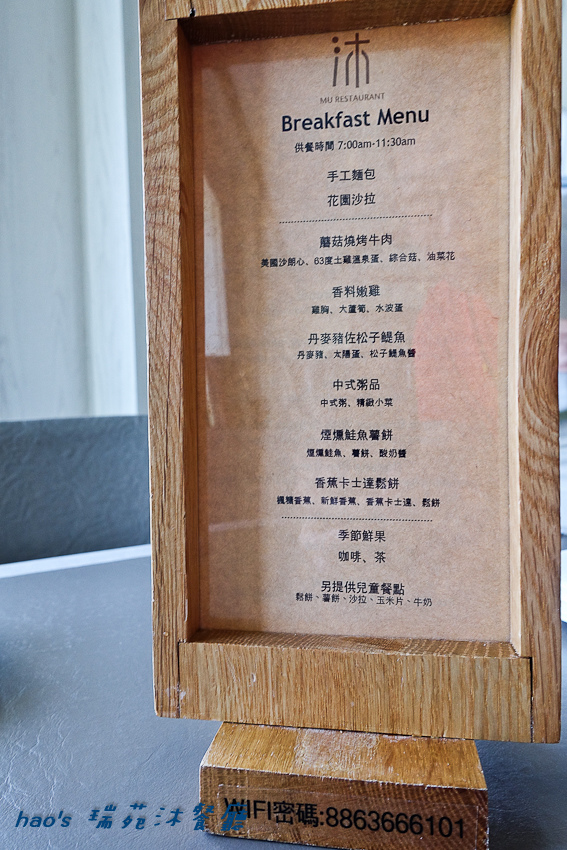 沐
MU RESTAURANT
Breakfast Menu
供餐時間 7:00am-11:30am
手工麵包
花園沙拉
蘑菇燒烤牛肉
美國沙朗心、63度土雞溫泉蛋、綜合菇、油菜花
香料嫩雞
雞胸、大蘆筍、水波蛋
丹麥豬佐松子鯷魚
丹麥豬、太陽蛋、松子鯷魚醬
中式粥品
中式粥、精緻小菜
煙燻鮭魚薯餅
煙燻鮭魚、薯餅、酸奶醬
香蕉卡士達鬆餅
楓糖香蕉、新鮮香蕉、香蕉卡士達、鬆餅
季節鮮果
咖啡、茶
另提供兒童餐點
鬆餅、薯餅、沙拉、玉米片、牛奶
WIFI密碼:8863666101
hao's 瑞苑沐餐廳